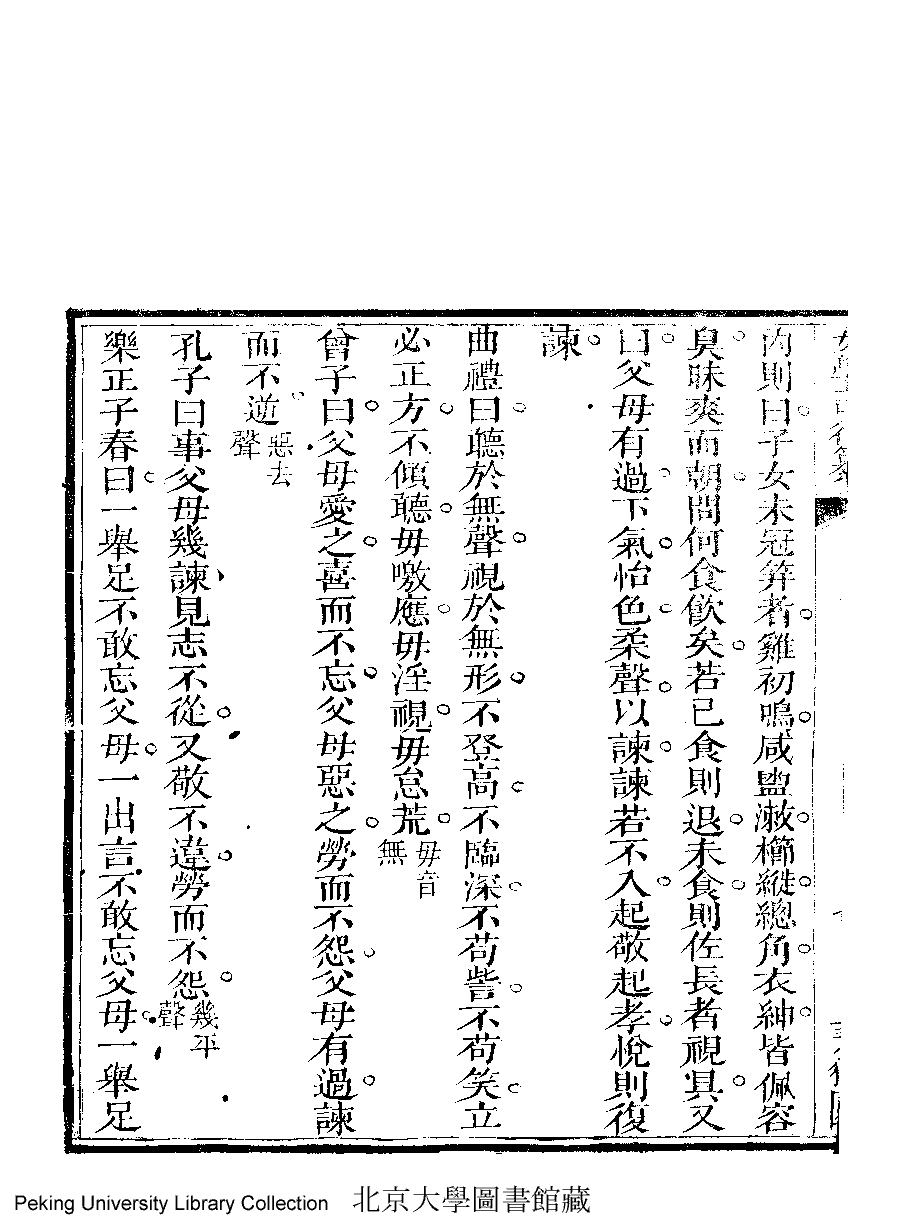 內則曰子女未冠筓者雞初鳴咸盥潄櫛縰總角衣紳皆佩容
臭昧爽而朝問何食飲矣若已食則退未食則佐長者視具又
曰父母有過下氣怡色柔聲以諫諫若不入起敬起孝悅則復
諫
曲禮曰聽於無聲視於無形不登高不臨深不苟訾不苟笑立
必正方不傾聽毋噭應毋淫視毋怠荒毋音無
曾子曰父母愛之喜而不忘父母惡之勞而不怨父母有過諫
而不逆惡去聲
孔子曰事父母幾諫見志不從又敬不違勞而不怨幾平聲
樂正子春曰一舉足不敢忘父母一出言不敢忘父母一舉足
Peking University Library Collection 北京大學圖書館藏